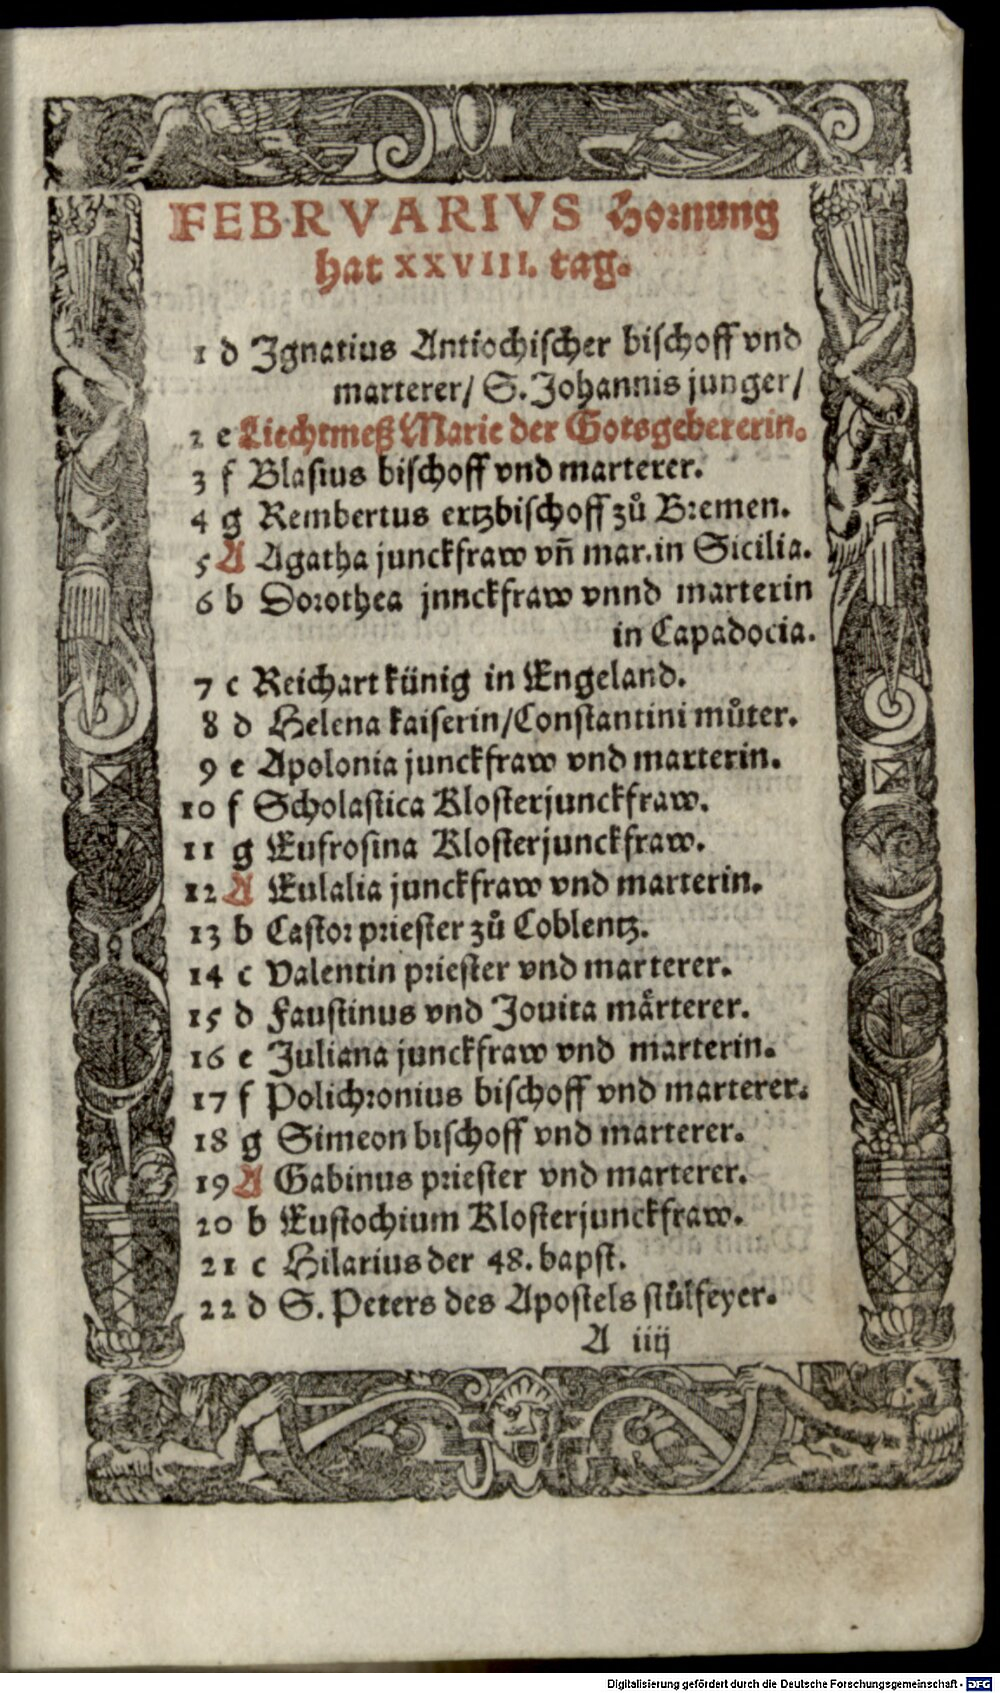 FEBRVARIVS Hornung
hat XXVIII. tag.
1 d Ignatius Antiochischer bischoff vnd
marterer/ S. Johannis junger/
2 e Liechtmeß Marie der Gotsgebererin.
3 f Blasius bischoff vnd marterer.
4 g Rembertus ertzbischoff zů Bremen.
5 A Agatha junckfraw vñ mar. in Sicilia.
6 b Dorothea jnnckfraw vnnd marterin
in Capadocia.
7 c Reichart künig in Engeland.
8 d Helena kaiserin/Constantini můter.
9 e Apolonia junckfraw vnd marterin.
10 f Scholastica Klosterjunckfraw.
11 g Eufrosina Klosterjunckfraw.
12 A Eulalia junckfraw vnd marterin.
13 b Castor priester zů Coblentz.
14 c Valentin priester vnd marterer.
15 d Faustinus vnd Jouita maͤrterer.
16 e Juliana junckfraw vnd marterin.
17 f Polichronius bischoff vnd marterer.
18 g Simeon bischoff vnd marterer.
19 A Gabinus priester vnd marterer.
20 b Eustochium Klosterjunckfraw.
21 c Hilarius der 48. bapst.
22 d S. Peters des Apostels stůlfeyer.
A iiij
Digitalisierung gefördert durch die Deutsche Forschungsgemeinschaft - DFG